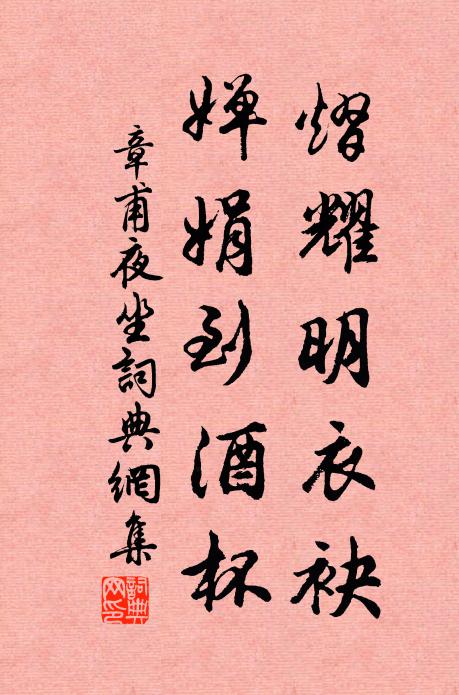 熠耀明衣袂
嬋娟到酒杯
章甫夜坐詞典網集
詞典網印